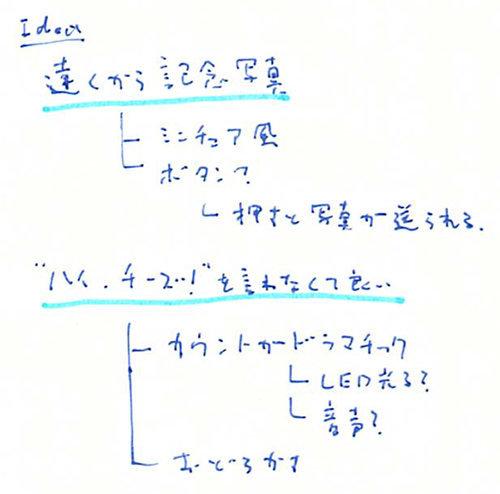 Idea
遠くから記念写真
ミニチュア風
ボタン?
押すと写真が送られる.
"ハイ、チーズ!"を言わなくて良い
カウントがドラマチック
LED光る?
音声?
おどろかす